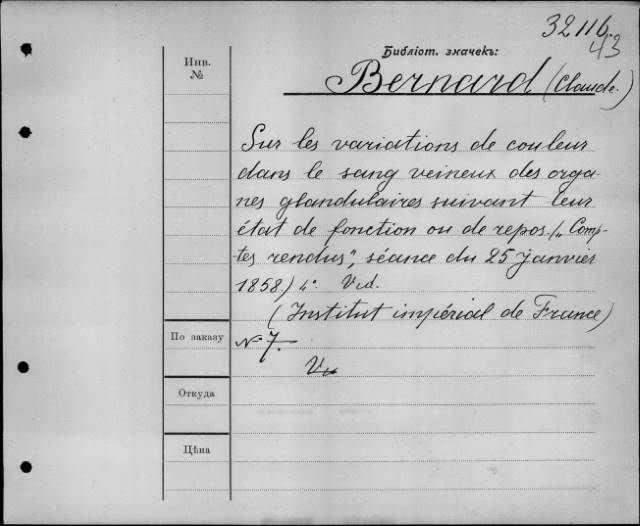 32116.
43
Библіот. значекъ:
Инв.
№
Bernard (Claude.)
Sur les variations de couleur
dans le sang veineux des orga-
nes glandulaires suivant leur
état de fonction ou de repos. („Comp-
tes rendus“, séance du 25 janvier
1858.) 4°. Vid.
(Institut impérial de France)
По заказу
№ 7.
Откуда
Цѣна